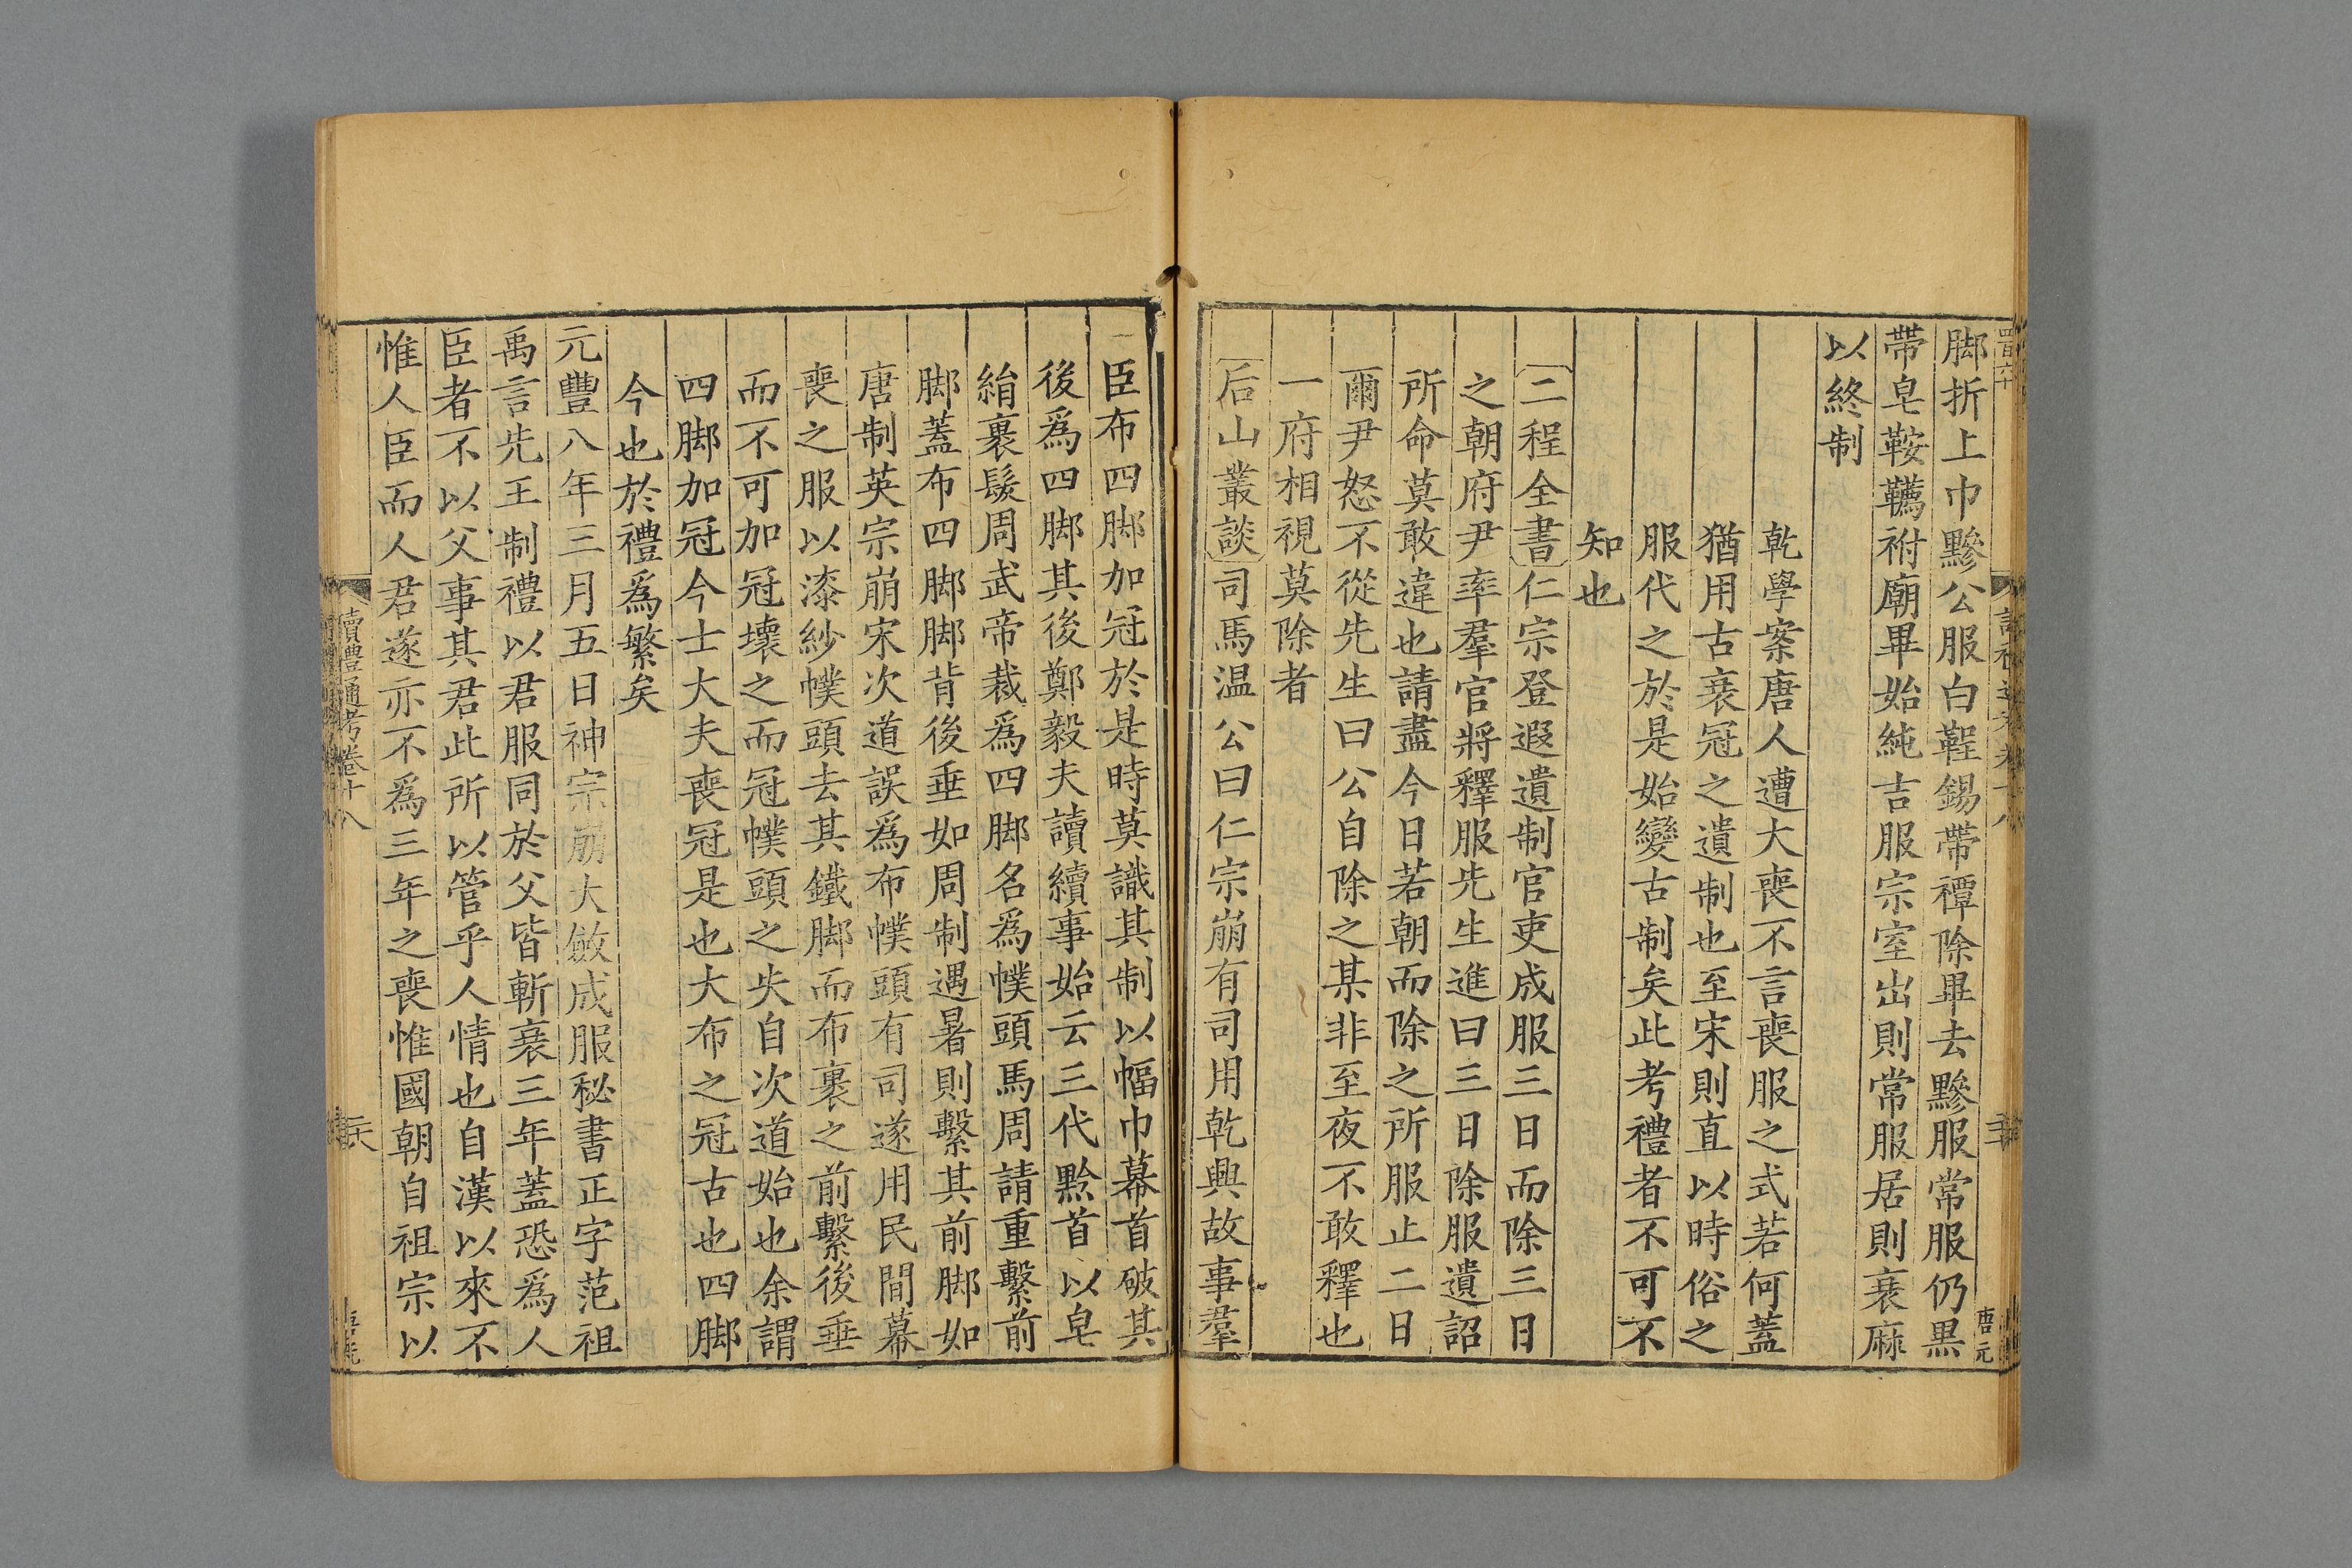 脚折上巾黲公服白鞓錫帶禫除畢去黲服常服仍黑
帶皂鞍韉祔廟畢始純吉服宗室出則常服居則衰麻
以終制
乾學案唐人遭大喪不言喪服之式若何蓋
猶用古衰冠之遺制也至宋則直以時俗之
服代之於是始變古制矣此考禮者不可不
知也
二程全書仁宗登遐遺制官吏成服三日而除三日
之朝府尹率羣官將釋服先生進曰三日除服遺詔
所命莫敢違也請盡今日若朝而除之所服止二日
爾尹怒不從先生曰公自除之某非至夜不敢釋也
一府相視莫除者
后山叢談司馬温公曰仁宗崩有司用乾興故事羣
臣布四脚加冠於是時莫識其制以幅巾幕首破其
後爲四脚其後鄭毅夫讀續事始云三代黔首以皂
絹裹髮周武帝裁爲四脚名爲幞頭馬周請重繫前
脚蓋布四脚脚背後垂如周制遇暑則繫其前脚如
唐制英宗崩宋次道誤爲布幞頭有司遂用民間幕
喪之服以漆紗幞頭去其鐵脚而布裹之前繫後垂
而不可加冠壞之而冠幞頭之失自次道始也余謂
四脚加冠今士大夫喪冠是也大布之冠古也四脚
今也於禮爲繁矣
元豐八年三月五日神宗崩大斂成服秘書正字范祖
禹言先王制禮以君服同於父皆斬衰三年蓋恐爲人
臣者不以父事其君此所以管乎人情也自漢以來不
惟人臣而人君遂亦不爲三年之喪惟國朝自祖宗以
讀禮通考卷十八